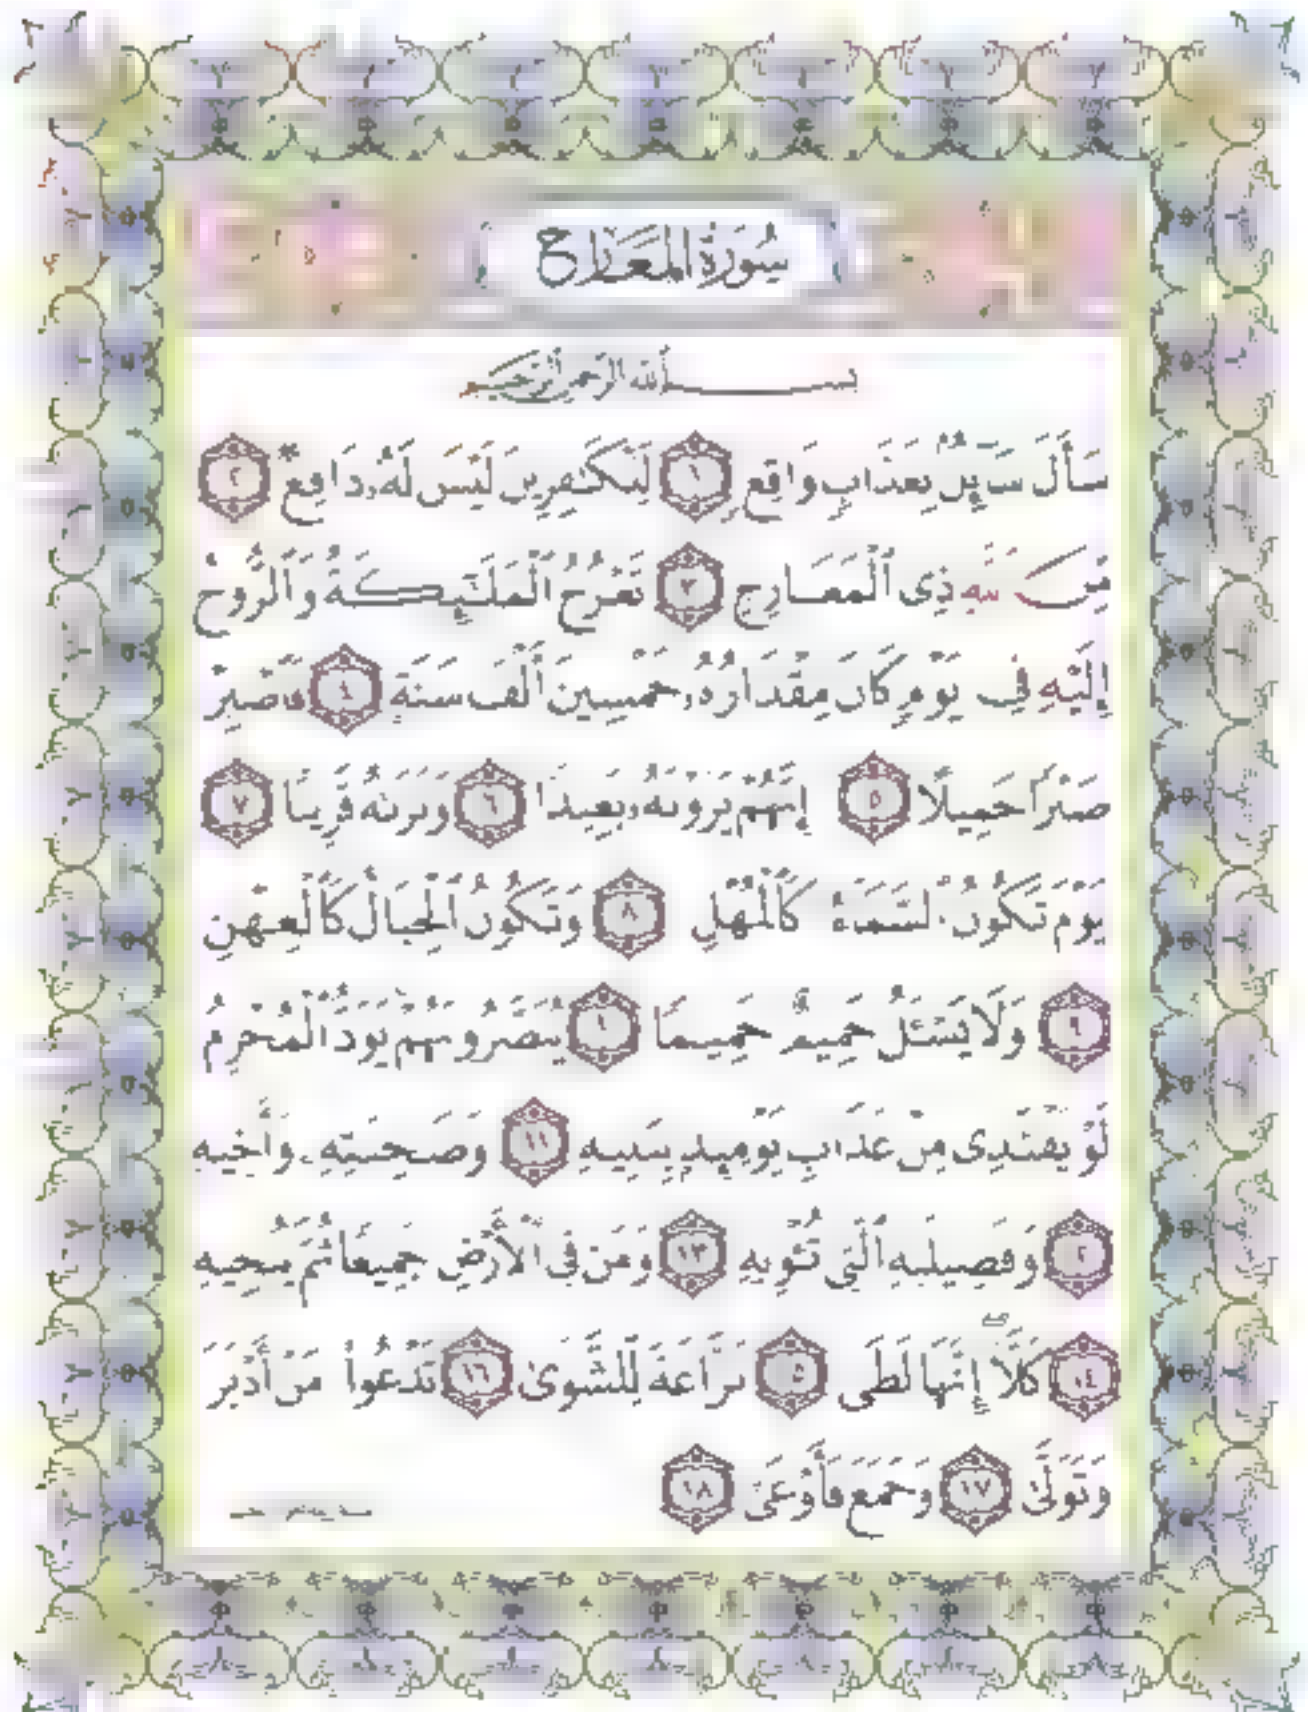 سُورَةُ المَعَارِجِ
بِسْمِ ٱللَّهِ ٱلرَّحْمَٰنِ ٱلرَّحِيمِ
سَأَلَ سَآئِلٌۢ بِعَذَابٍ وَاقِعٍ ١ لِّلْكَٰفِرِينَ لَيْسَ لَهُۥ دَافِعٌ ٢
مِّنَ ٱللَّهِ ذِى ٱلْمَعَارِجِ ٣ تَعْرُجُ ٱلْمَلَٰٓئِكَةُ وَٱلرُّوحُ
إِلَيْهِ فِى يَوْمٍ كَانَ مِقْدَارُهُۥ خَمْسِينَ أَلْفَ سَنَةٍ ٤ فَٱصْبِرْ
صَبْرًا جَمِيلًا ٥ إِنَّهُمْ يَرَوْنَهُۥ بَعِيدًا ٦ وَنَرَىٰهُ قَرِيبًا ٧
يَوْمَ تَكُونُ ٱلسَّمَآءُ كَٱلْمُهْلِ ٨ وَتَكُونُ ٱلْجِبَالُ كَٱلْعِهْنِ
٩ وَلَا يَسْـَٔلُ حَمِيمٌ حَمِيمًا ١٠ يُبَصَّرُونَهُمْ يَوَدُّ ٱلْمُجْرِمُ
لَوْ يَفْتَدِى مِنْ عَذَابِ يَوْمِئِذٍۭ بِبَنِيهِ ١١ وَصَٰحِبَتِهِۦ وَأَخِيهِ
١٢ وَفَصِيلَتِهِ ٱلَّتِى تُـْٔوِيهِ ١٣ وَمَن فِى ٱلْأَرْضِ جَمِيعًا ثُمَّ يُنجِيهِ
١٤ كَلَّآ إِنَّهَا لَظَىٰ ١٥ نَزَّاعَةً لِّلشَّوَىٰ ١٦ تَدْعُوا۟ مَنْ أَدْبَرَ
وَتَوَلَّىٰ ١٧ وَجَمَعَ فَأَوْعَىٰٓ ١٨